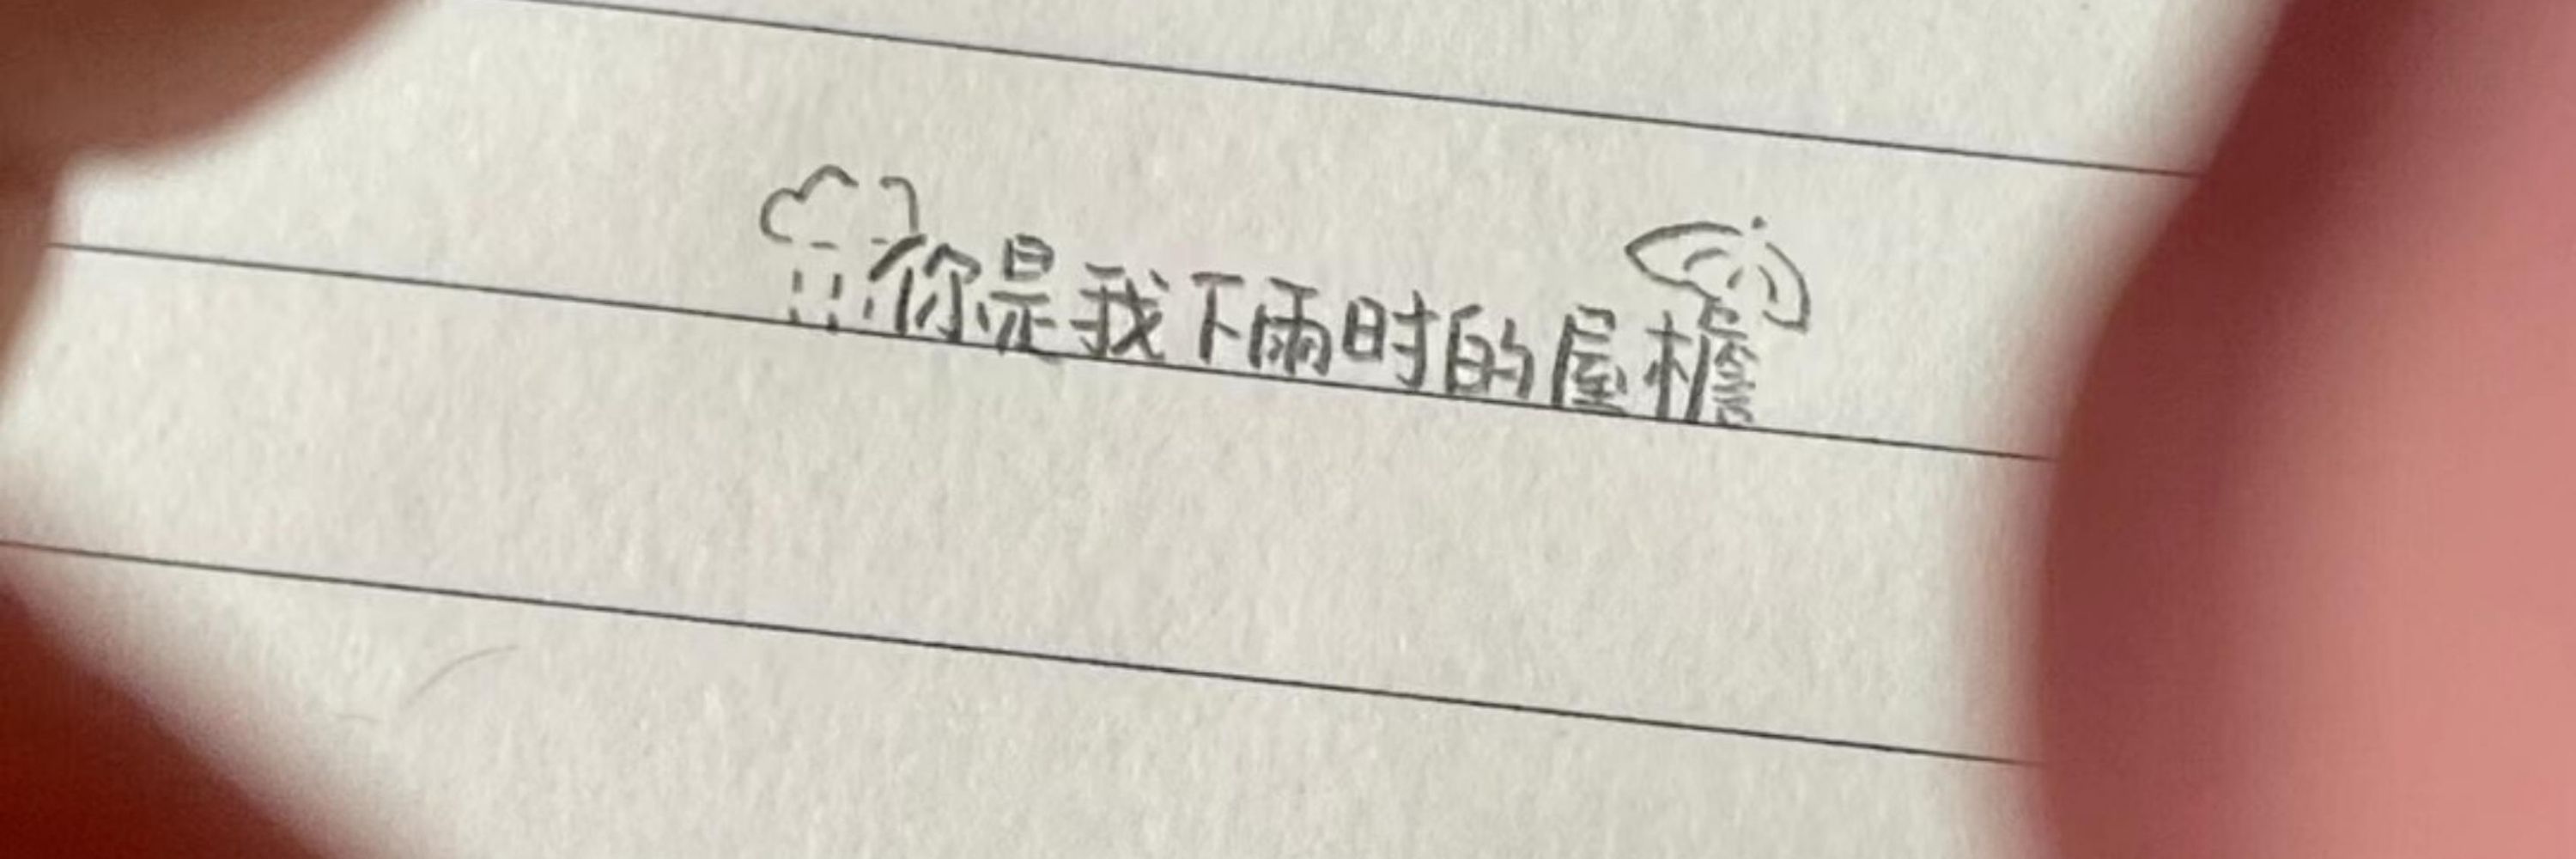 你是我下雨时的屋檐